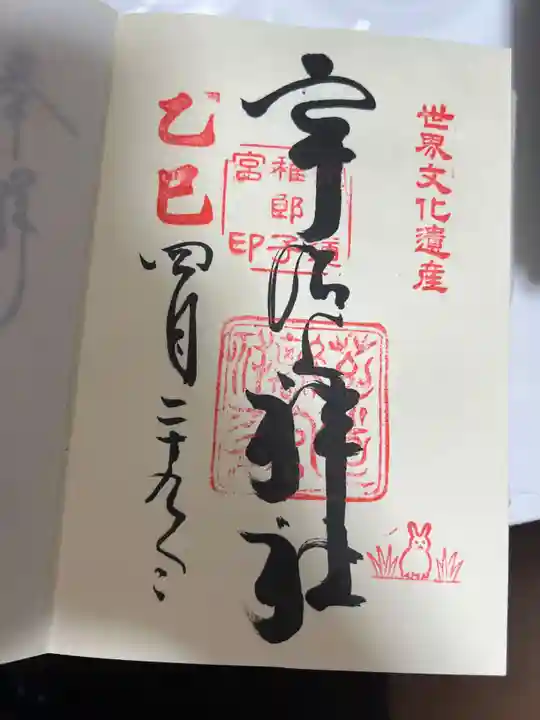 世界文化遺産
宇治上神社
稚郎子
宮印
乙巳
四月二十九日
奉拝